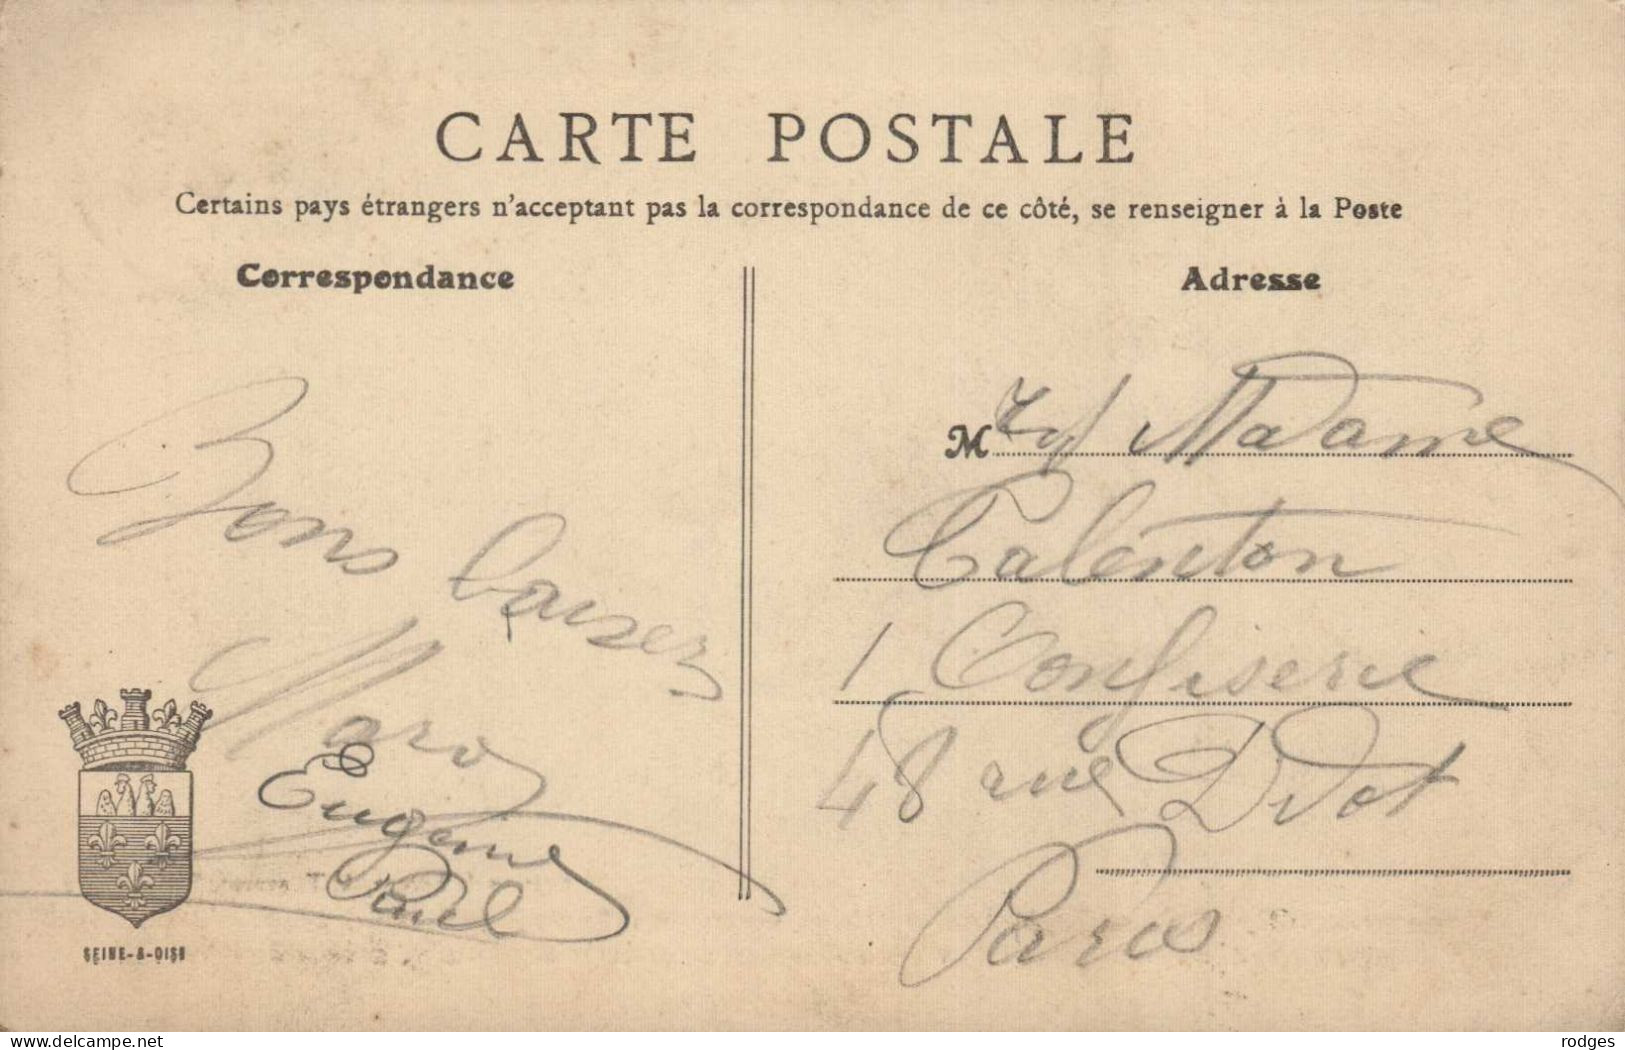 CARTE POSTALE
Certains pays étrangers n'acceptant pas la correspondance de ce côté, se renseigner à la Poste
Correspondance
Adresse
Bons baisers
Eugénie
Paul
SEINE-&-OISE
M et Madame
Calenton
Confiserie
48 rue Didot
Paris
www.delcampe.net
rodges